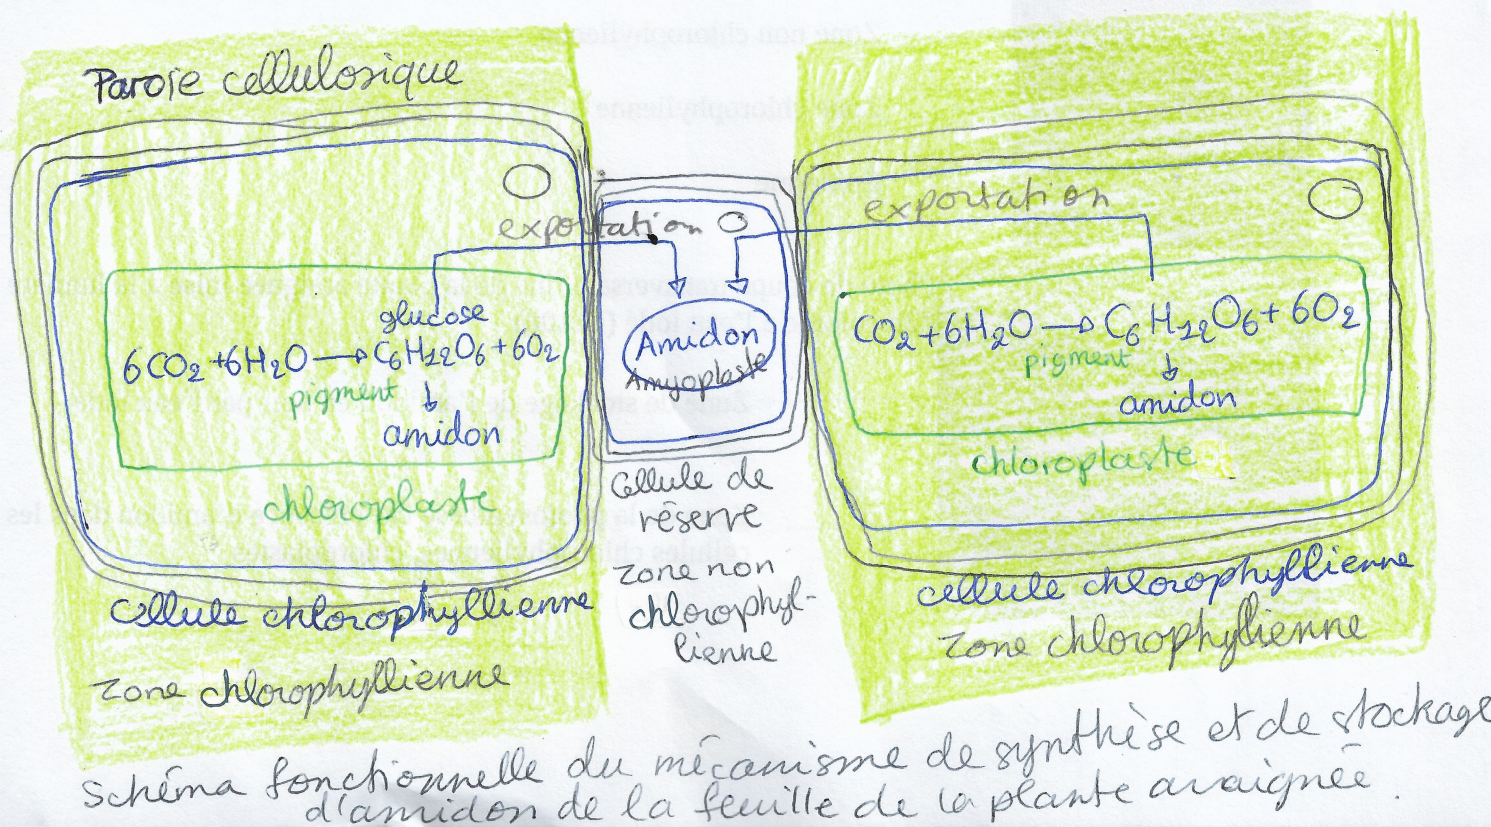 Paroie cellulosique
exportation
glucose
6CO₂ +6H₂O → C₆H₁₂O₆ + 6O₂
pigment
↓
amidon
chloroplaste
Cellule chlorophyllienne
Zone chlorophyllienne
Amidon
Amyoplaste
Cellule de
réserve
Zone non
chlorophyl-
lienne
exportation
CO₂+6H₂O → C₆H₁₂O₆+ 6O₂
pigment
↓
amidon
chloroplaste
cellule chlorophyllienne
Zone chlorophyllienne
Schéma fonctionnelle du mécanisme de synthèse et de stockage
d'amidon de la feuille de la plante araignée.